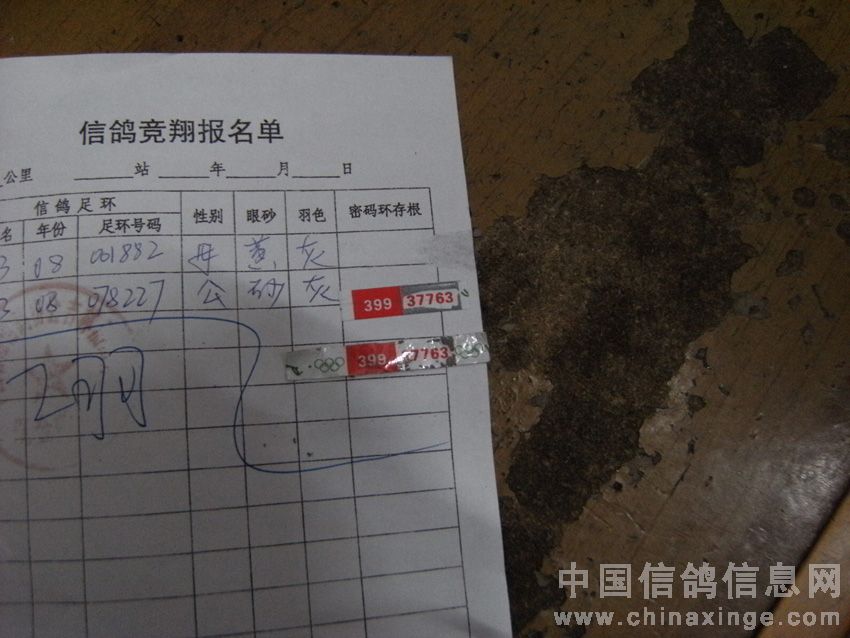 信鸽竞翔报名单
公里 站 年 月 日
信鸽足环 性别 眼砂 羽色 密码环存根
名 年份 足环号码
3 08 061882 母 黄 灰
3 08 078227 公 砂 灰 399 37763
399 37763
中国信鸽信息网
www.chinaxinge.com